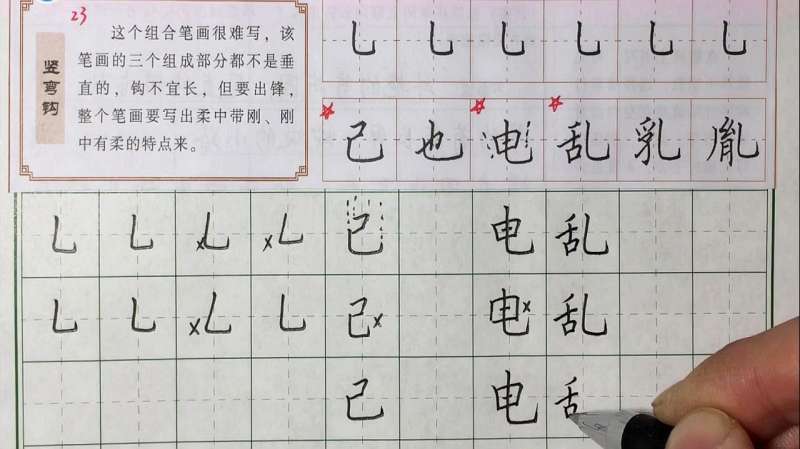 23
竖弯钩
这个组合笔画很难写，该
笔画的三个组成部分都不是垂
直的，钩不宜长，但要出锋，
整个笔画要写出柔中带刚、刚
中有柔的特点来。
乚 乚 乚 乚 乚 乚
己 也 电 乱 乳 胤
乚 乚 x乚 x乚 己 电 乱
乚 乚 x乚 乚 己x 电x 乱
己 电 舌